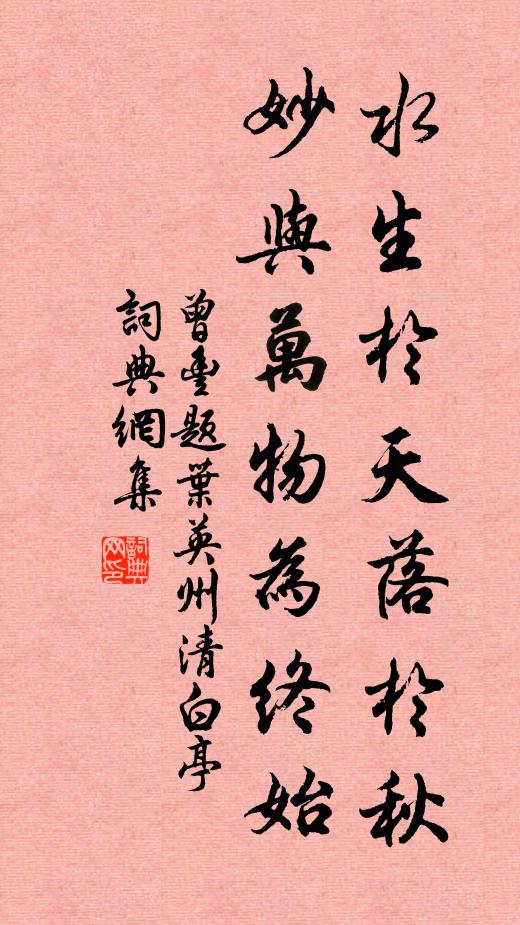 水生於天落於秋
妙與萬物為終始
曾豐題葉英州清白亭
詞典網集
詞典网印